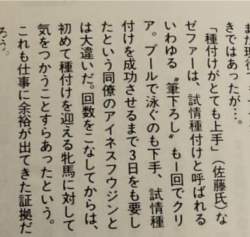 きではあったが…。
「種付けがとても上手」（佐藤氏）な
ゼファーは、試情種付けと呼ばれる
いわゆる〝筆下ろし〟も1回でクリ
ア。プールで泳ぐのも下手、試情種
付けを成功させるまで3日をも要し
たという同僚のアイネスフウジンと
は大違いだ。回数をこなしてからは、
初めて種付けを迎える牝馬に対して
気をつかうことすらあったという。
これも仕事に余裕が出てきた証拠だ
ろう。